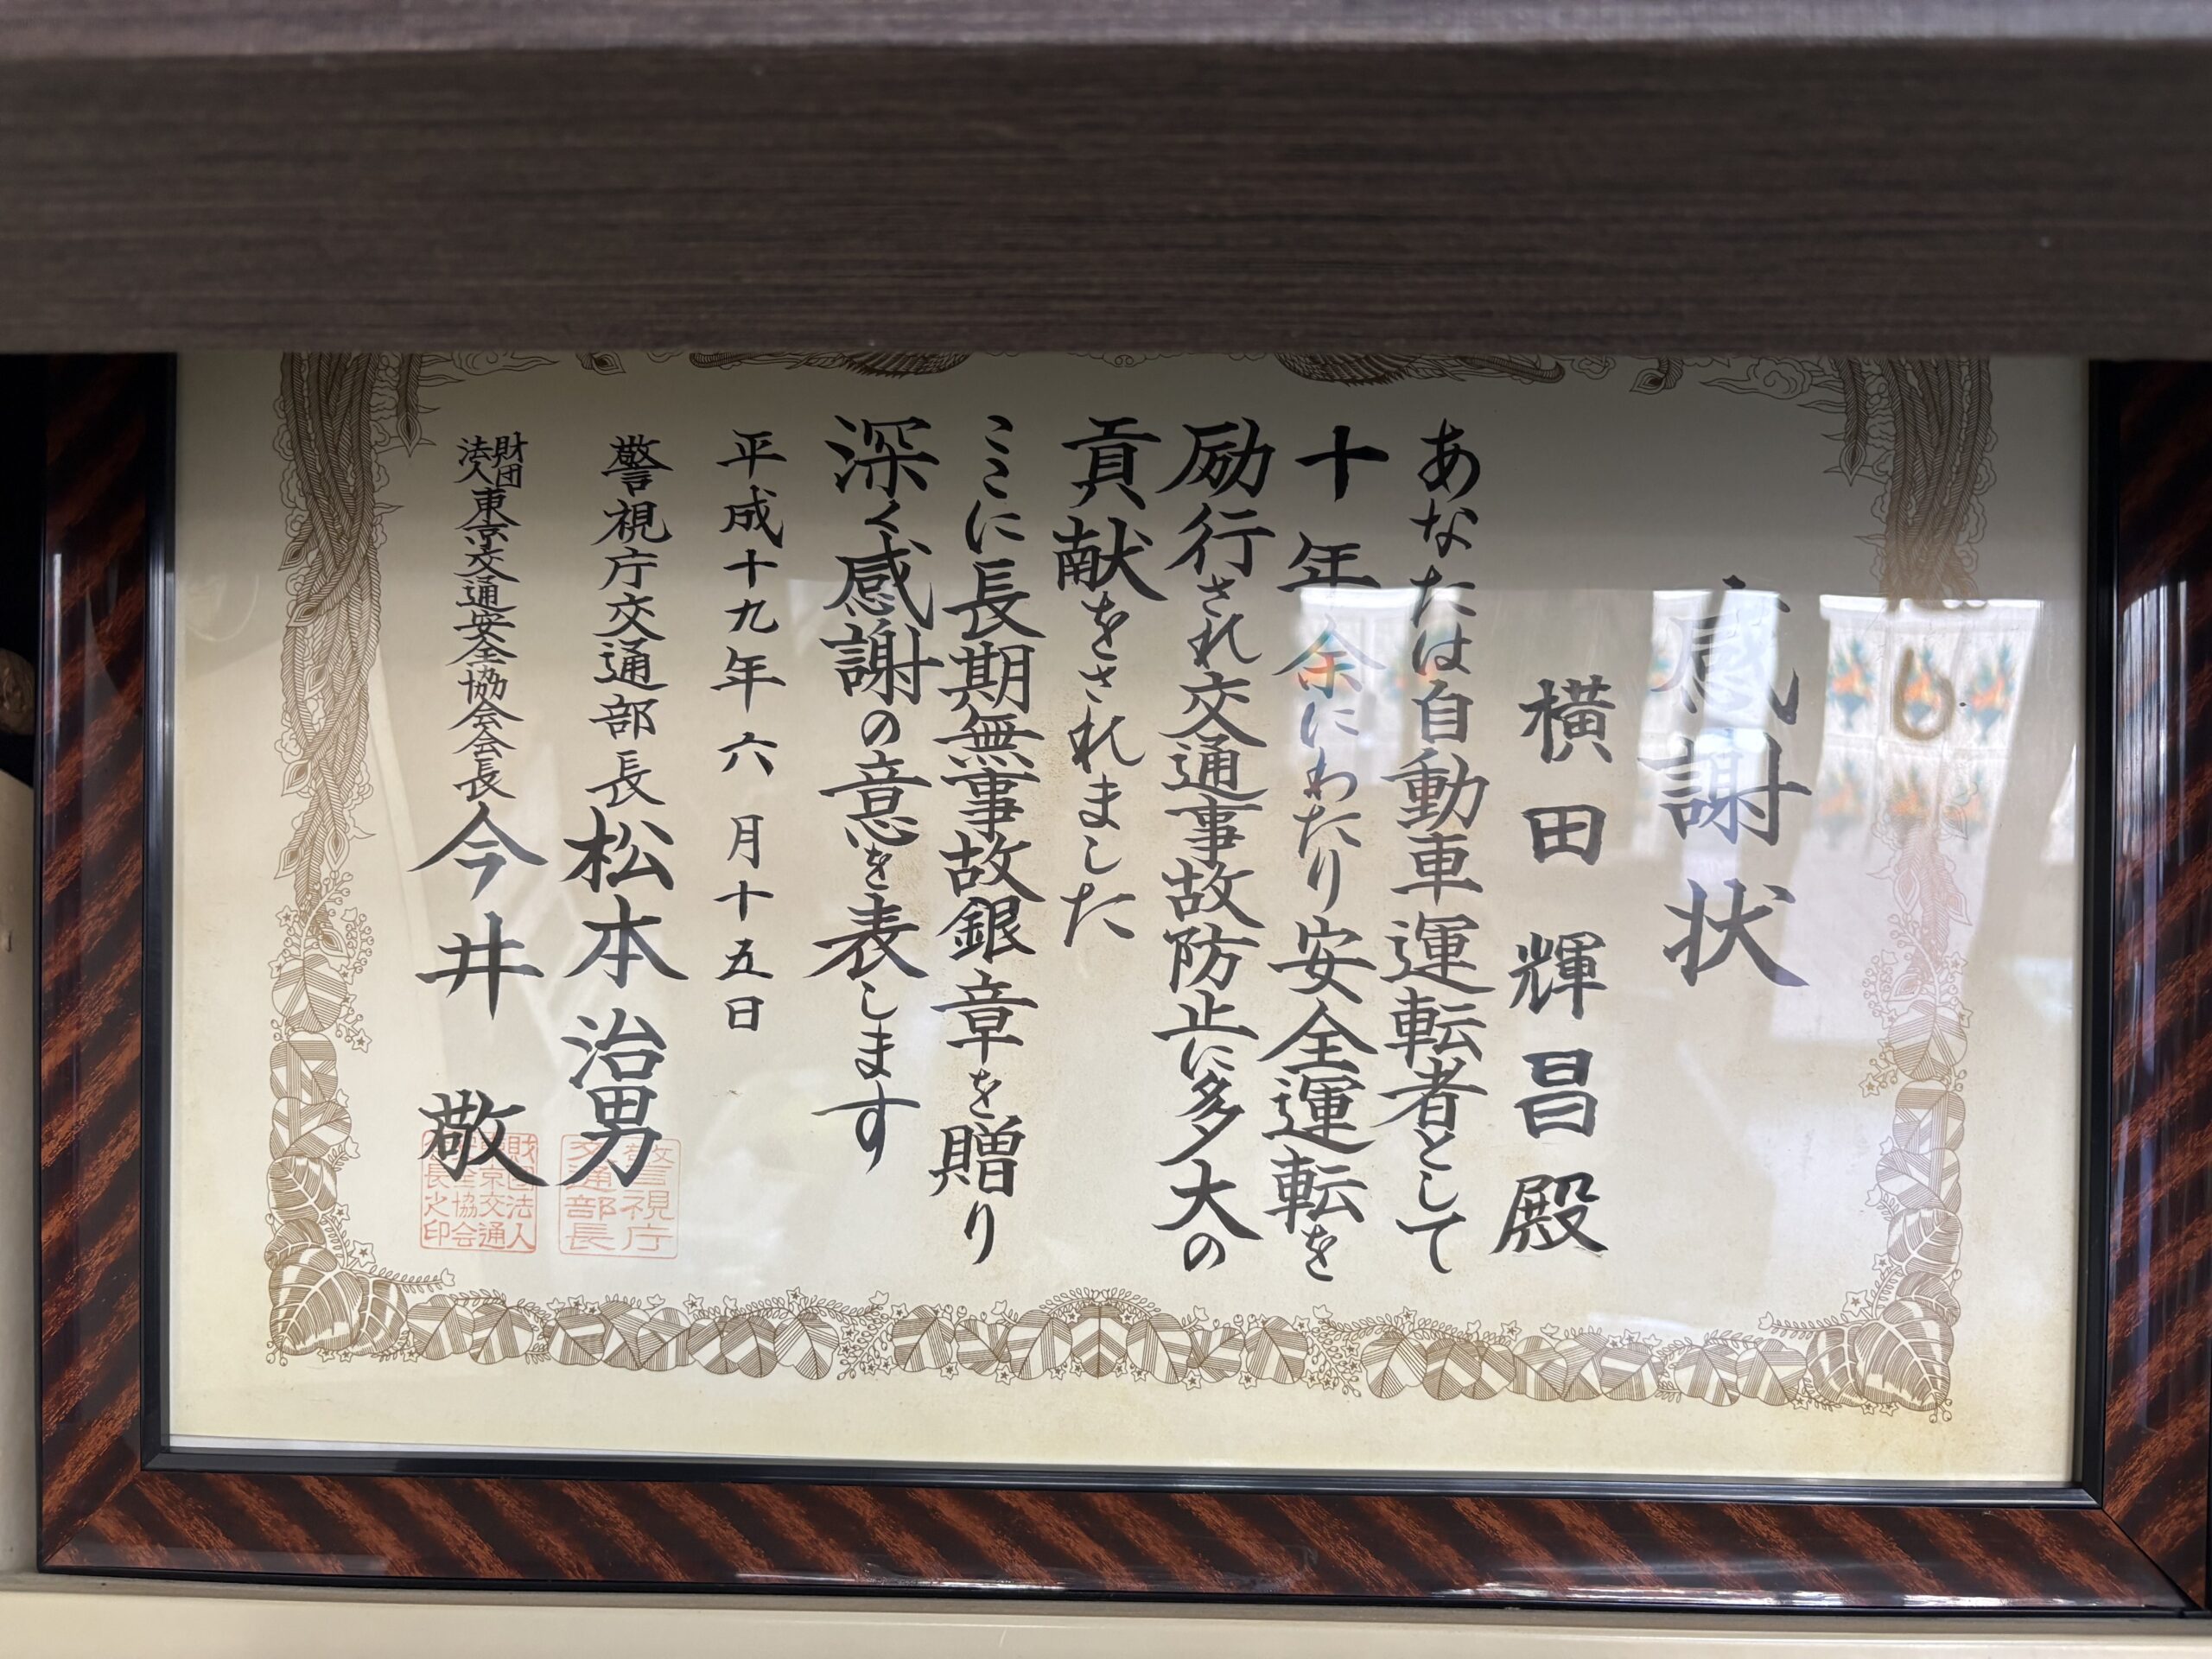 感謝状
横田輝昌殿
あなたは自動車運転者として
十年余にわたり安全運転を
励行され交通事故防止に多大の
貢献をされました
ここに長期無事故銀章を贈り
深く感謝の意を表します
平成十九年六月十五日
警視庁交通部長 松本治男
財団法人東京交通安全協会会長 今井敬
警視庁
交通部長
財団法人
東京交通
安全協会
会長之印